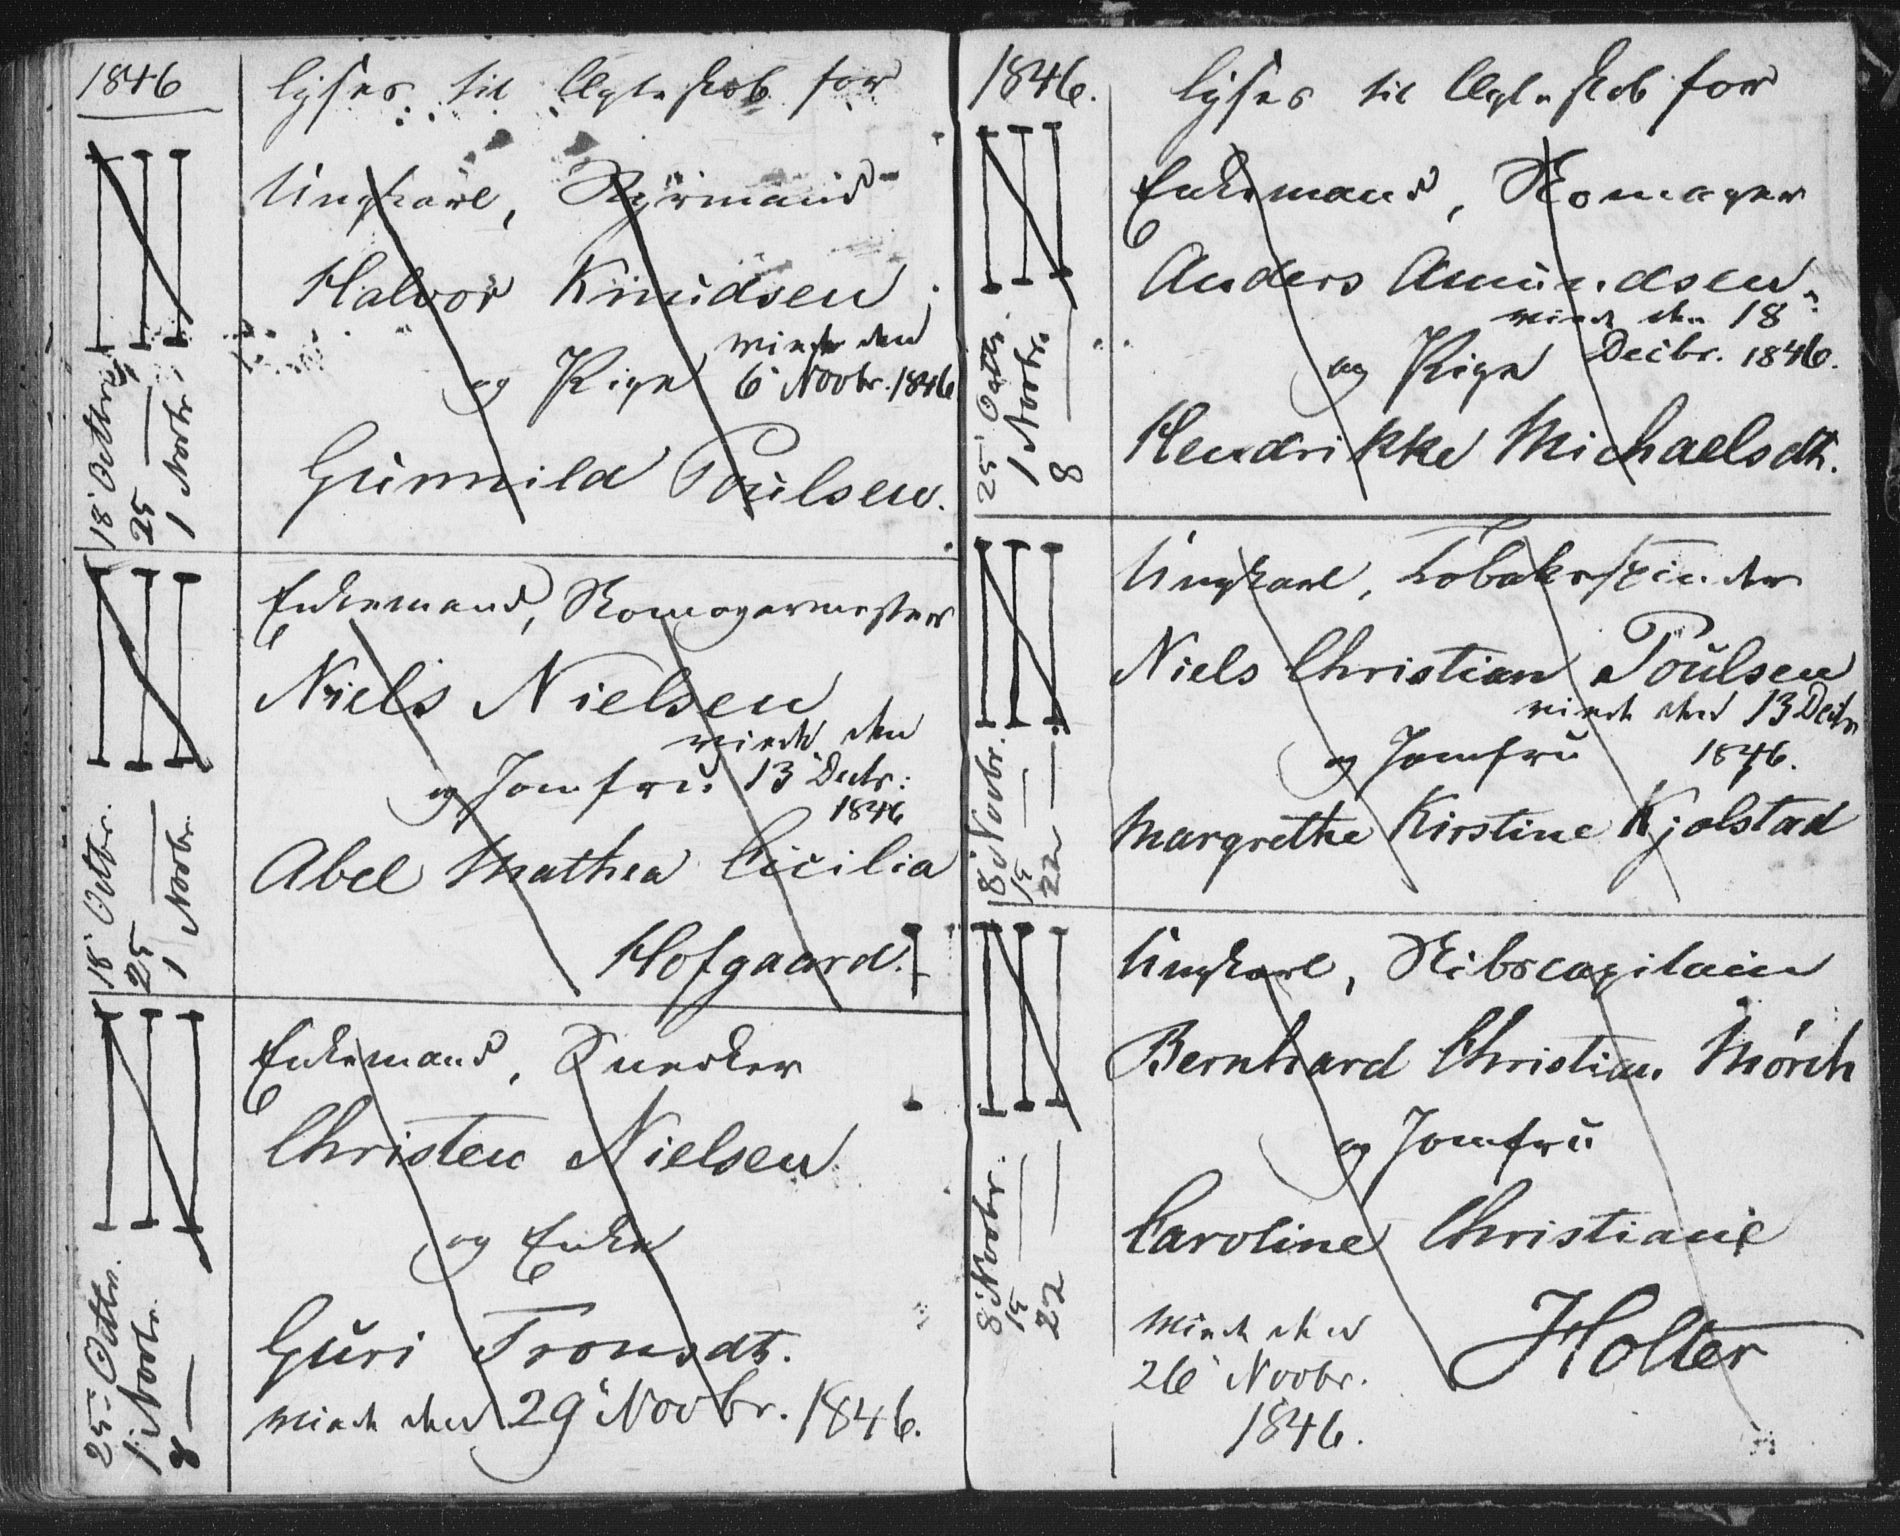 1846
lyses til Ægteskab for
18 Octbr.
25 —
1 Novbr.
Ungkarl, Styrmand
Halvor Knudsen
viede den
og Pige 6 Novbr. 1846
Gunnild Poulsen.
18 Octbr.
25 —
1 Novbr.
Enkemand, Skomagermester
Niels Nielsen
viede den
og Jomfru 13 Decbr.
1846
Abel Mathea Cicilia
Hofgaard.
25 Octbr.
1 Novbr.
8 —
Enkemand, Snedker
Christen Nielsen
og Enke
Guri Tronsdt.
viede den 29 Novbr. 1846.
1846.
lyses til Ægteskab for
25 Octbr.
1 Novbr.
8 —
Enkemand, Skomager
Anders Amundsen
viede den 18
og Pige Decbr. 1846.
Hendrikke Michaelsdtr.
8 Novbr.
15 —
22 —
Ungkarl, Tobakspinder
Niels Christian Poulsen
viede den 13 Decbr
og Jomfru 1846.
Margrethe Kirstine Kjolstad
8 Novbr.
15 —
22 —
Ungkarl, Skibscapitain
Bernhard Christian Mörch
og Jomfru
Caroline Christiane
Holter
viede den
26 Novbr.
1846.